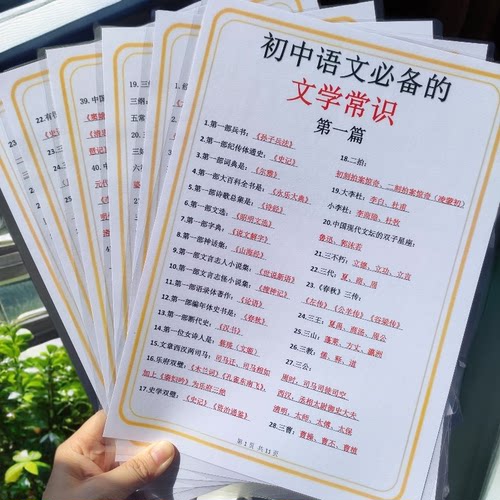 初中语文必备的
文学常识
第一篇
1.第一部兵书：《孙子兵法》
2.第一部纪传体通史：《史记》
3.第一部词典是：《尔雅》
4.第一部大百科全书是：《永乐大典》
5.第一部诗歌总集是：《诗经》
6.第一部文选：《昭明文选》
7.第一部字典：《说文解字》
8.第一部神话集：《山海经》
9.第一部文言志人小说集：《世说新语》
10.第一部文言志怪小说集：《搜神记》
11.第一部语录体著作：《论语》
12.第一部编年体史书是：《春秋》
13.第一部断代史：《汉书》
14.第一位女诗人是：蔡琰（文姬）
15.文章西汉两司马：司马迁、司马相如
16.乐府双璧：《木兰词》《孔雀东南飞》，
加上《秦妇吟》为乐府三绝
17.史学双璧：《史记》《资治通鉴》
18.二拍：
初刻拍案惊奇、二刻拍案惊奇（凌蒙初）
19.大李杜：李白、杜甫
小李杜：李商隐、杜牧
20.中国现代文坛的双子星座：
鲁迅、郭沫若
21.三不朽：立德、立功、立言
22.三代：夏、商、周
23.《春秋》三传：
《左传》《公羊传》《谷梁传》
24.三王：夏禹、商汤、周公
25.三山：蓬莱、方丈、瀛洲
26.三教：儒、释、道
27.三公：
周时，司马司徒司空
西汉，丞相太尉御史大夫
清明，太师、太傅、太保
28.三曹：曹操、曹丕、曹植
第 1 页 共 11 页